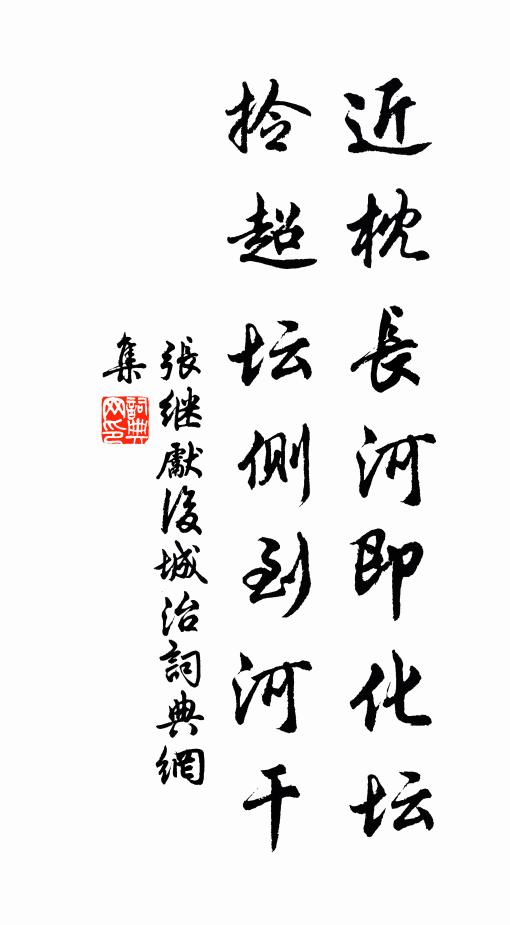 近枕長河即化坛
拾超坛側到河干
張继獻後城治詞典網
集
詞典網印